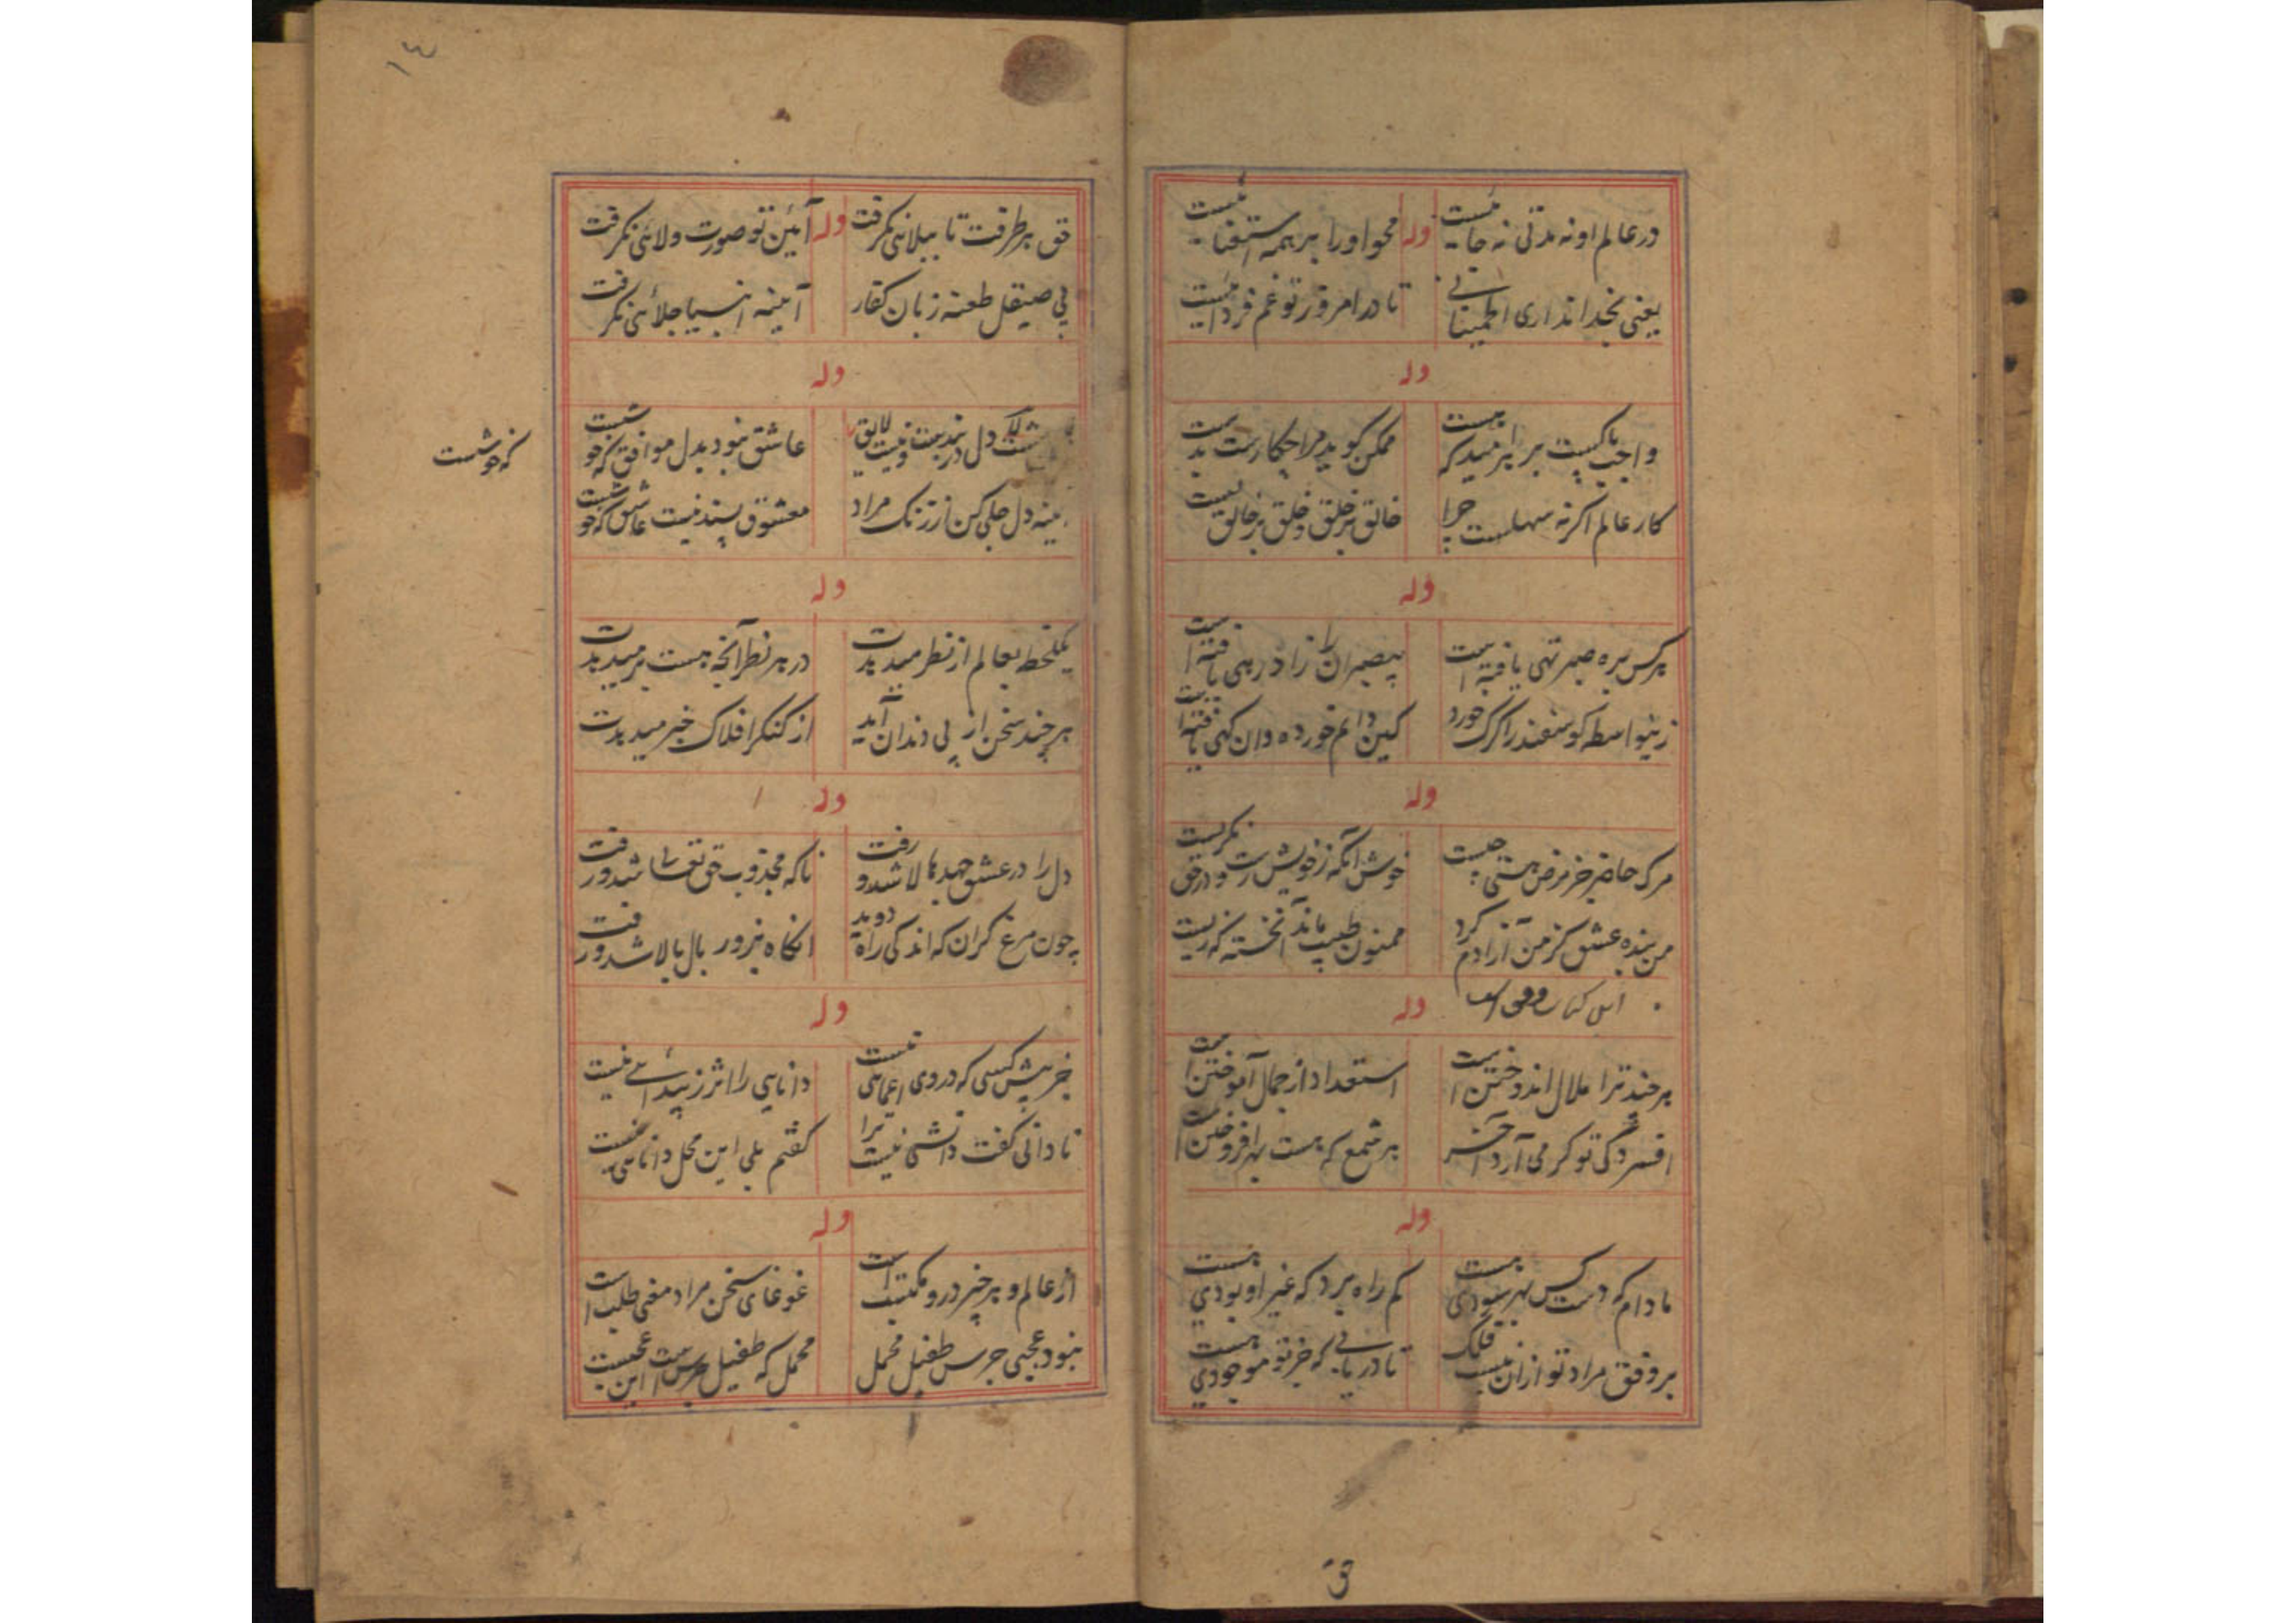 در عالم او نه مدتی نه جائیست
وله
محو او را بر همه استغنائیست
یعنی بخدا نداری اطمینانی
تا در امروز تو غم فردائیست
وله
واجب پاکیست برابر میدکه هست
ممکن گوید مرا چکارست بدست
کار عالم اگر نه سهلست چرا
خالق بر خلق و خلق بر خالق
وله
هر کس بره صبر تهی یافته است
بیصبران را زاد رهی یافته است
زینواسطه گوسفند را گرگ خورد
کین دایم خورده و آن گهی یافته است
وله
مرگ حاضر خر مرض هستی چیست
خوش آنکه ز خویش رست و در حق نگریست
من بنده عشق کز من آزادم کرد
ممنون طبیب ماند آنخسته که زیست
وله
هر چند ترا ملال اندوختن است
استعداد از جمال آموختن است
افسردگی تو گرمی آرد آخر
هر شمع که هست بهر افروختن است
وله
مادام که دست کس بهر سودی هست
کم راه برد که غیر او بودی هست
بر وفق مراد تو از آن نیست فلک
تا دریابی که جز تو موجودی هست
حق
١٤
حق بر طرفت تا ببلائی نگرفت
وله
آئین تو صورت ولائی نگرفت
بی صیقل طعنه زبان کفار
آئینه انبیا جلائی نگرفت
وله
دل در بند تست و نیست لایق
عاشق نبود بدل موافق که خوشست
دل جلی کن از زنگ مراد
معشوق پسند نیست عاشق که خوشست
که خوشست
وله
یکلحظه بعالم از نظر میدیدت
در هر نظر آنچه هست بر میدیدت
هر چند سخن از پی دندان آید
از کنگر افلاک خبر میدیدت
وله
دل را در عشق جهدها لا شد و رفت
ناگه مجذوب حق تعالی شد و رفت
چون مرغ گران که اندکی راه دوید
آنگاه بزور بال بالا شد و رفت
وله
جز پیش کسی که در وی اعمائی نیست
دانایی را اثر ز پیدائی نیست
نادانی گفت دانشی نیست ترا
گفتم بلی این محل دانائی نیست
وله
از عالم و هر چیز درو مکتسب است
غوغای سخن مراد معنی طلب است
نبود عجبی جرس طفیل محمل
محمل که طفیل جرس است این عجبست